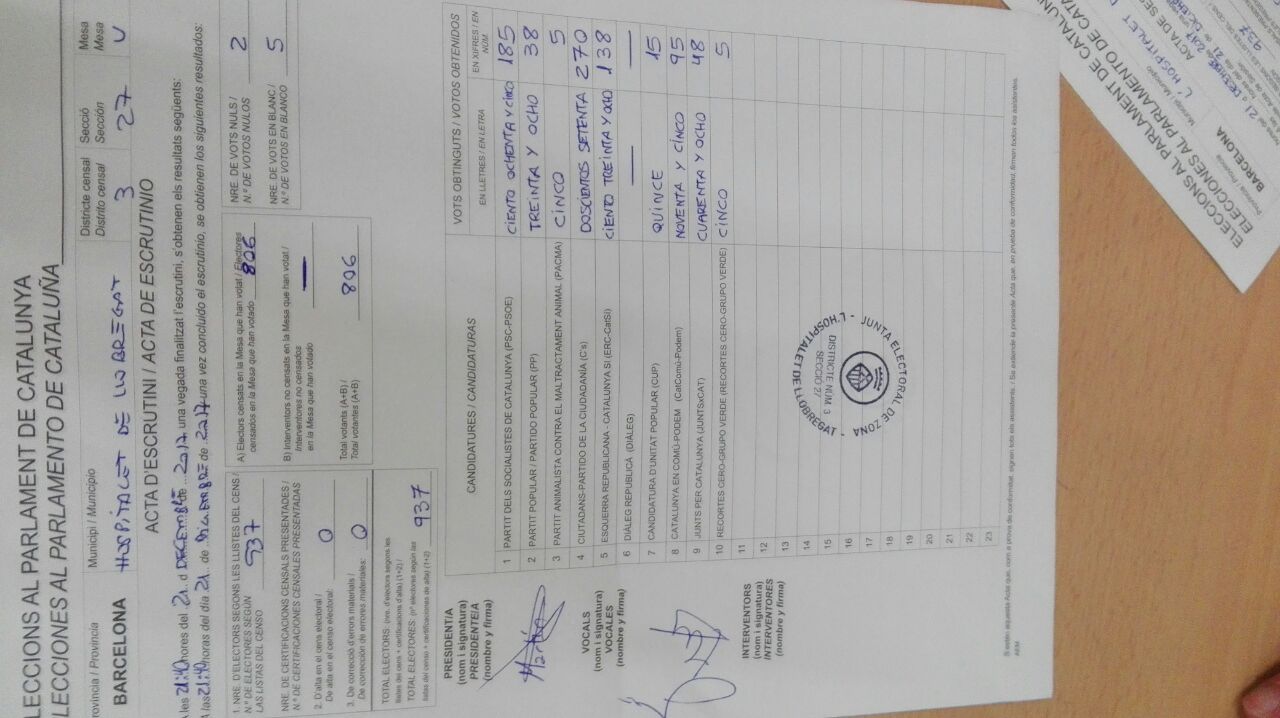 LECCIONS AL PARLAMENT DE CATALUNYA
LECCIONES AL PARLAMENTO DE CATALUÑA
rovíncia / Provincia
Municipi / Municipio
Districte censal
Distrito censal
Secció
Sección
Mesa
Mesa
BARCELONA HOSPITALET DE LLOBREGAT 3 27 U
ACTA D'ESCRUTINI / ACTA DE ESCRUTINIO
A les 21:40 hores del 21 d DESEMBRE de 2017 una vegada finalitzat l'escrutini, s'obtenen els resultats següents:
A las 21:40 horas del día 21 de DICIEMBRE de 2017 una vez concluido el escrutinio, se obtienen los siguientes resultados:
1. NRE. D'ELECTORS SEGONS LES LLISTES DEL CENS /
N.º DE ELECTORES SEGÚN
LAS LISTAS DEL CENSO
937
NRE. DE CERTIFICACIONS CENSALS PRESENTADES /
N.º DE CERTIFICACIONES CENSALES PRESENTADAS
2. D'alta en el cens electoral /
De alta en el censo electoral: 0
3. De correcció d'errors materials /
De corrección de errores materiales: 0
TOTAL ELECTORS: (nre. d'electors segons les
llistes del cens + certificacions d'alta) (1+2) /
TOTAL ELECTORES: (nº electores según las
listas del censo + certificaciones de alta) (1+2)
937
A) Electors censats en la Mesa que han votat / Electores
censados en la Mesa que han votado 806
B) Interventors no censats en la Mesa que han votat /
Interventores no censados
en la Mesa que han votado —
Total votants (A+B) /
Total votantes (A+B) 806
NRE. DE VOTS NULS /
N.º DE VOTOS NULOS 2
NRE. DE VOTS EN BLANC /
N.º DE VOTOS EN BLANCO 5
CANDIDATURES / CANDIDATURAS
VOTS OBTINGUTS / VOTOS OBTENIDOS
EN LLETRES / EN LETRA
EN XIFRES / EN
NÚM
1 PARTIT DELS SOCIALISTES DE CATALUNYA (PSC-PSOE) CIENTO OCHENTA Y CINCO 185
2 PARTIT POPULAR / PARTIDO POPULAR (PP) TREINTA Y OCHO 38
3 PARTIT ANIMALISTA CONTRA EL MALTRACTAMENT ANIMAL (PACMA) CINCO 5
4 CIUTADANS-PARTIDO DE LA CIUDADANÍA (C's) DOSCIENTOS SETENTA 270
5 ESQUERRA REPUBLICANA - CATALUNYA SÍ (ERC-CatSí) CIENTO TREINTA Y OCHO 138
6 DIÀLEG REPUBLICÀ (DIÀLEG) — —
7 CANDIDATURA D'UNITAT POPULAR (CUP) QUINCE 15
8 CATALUNYA EN COMÚ-PODEM (CatComú-Podem) NOVENTA Y CINCO 95
9 JUNTS PER CATALUNYA (JUNTSxCAT) CUARENTA Y OCHO 48
10 RECORTES CERO-GRUPO VERDE (RECORTES CERO-GRUPO VERDE) CINCO 5
11
12
13
14
15
16
17
18
19
20
21
22
23
PRESIDENTIA
(nom i signatura)
PRESIDENTE/A
(nombre y firma)
VOCALS
(nom i signatura)
VOCALES
(nombre y firma)
INTERVENTORS
(nom i signatura)
INTERVENTORES
(nombre y firma)
JUNTA ELECTORAL DE ZONA - L'HOSPITALET DE LLOBREGAT -
DISTRICTE NÚM. 3
SECCIÓ 27
S'estén aquesta Acta que, com a prova de conformitat, signen tots els assistents. / Se extiende la presente Acta que, en prueba de conformidad, firman todos los asistentes.
ELECCIONS AL PARLAMENT DE CATALUN
ELECCIONES AL PARLAMENTO DE CATA
Província / Provincia
Municipi / Municipio
BARCELONA
L'HOSPITALET
ACTA DE SE
21
937